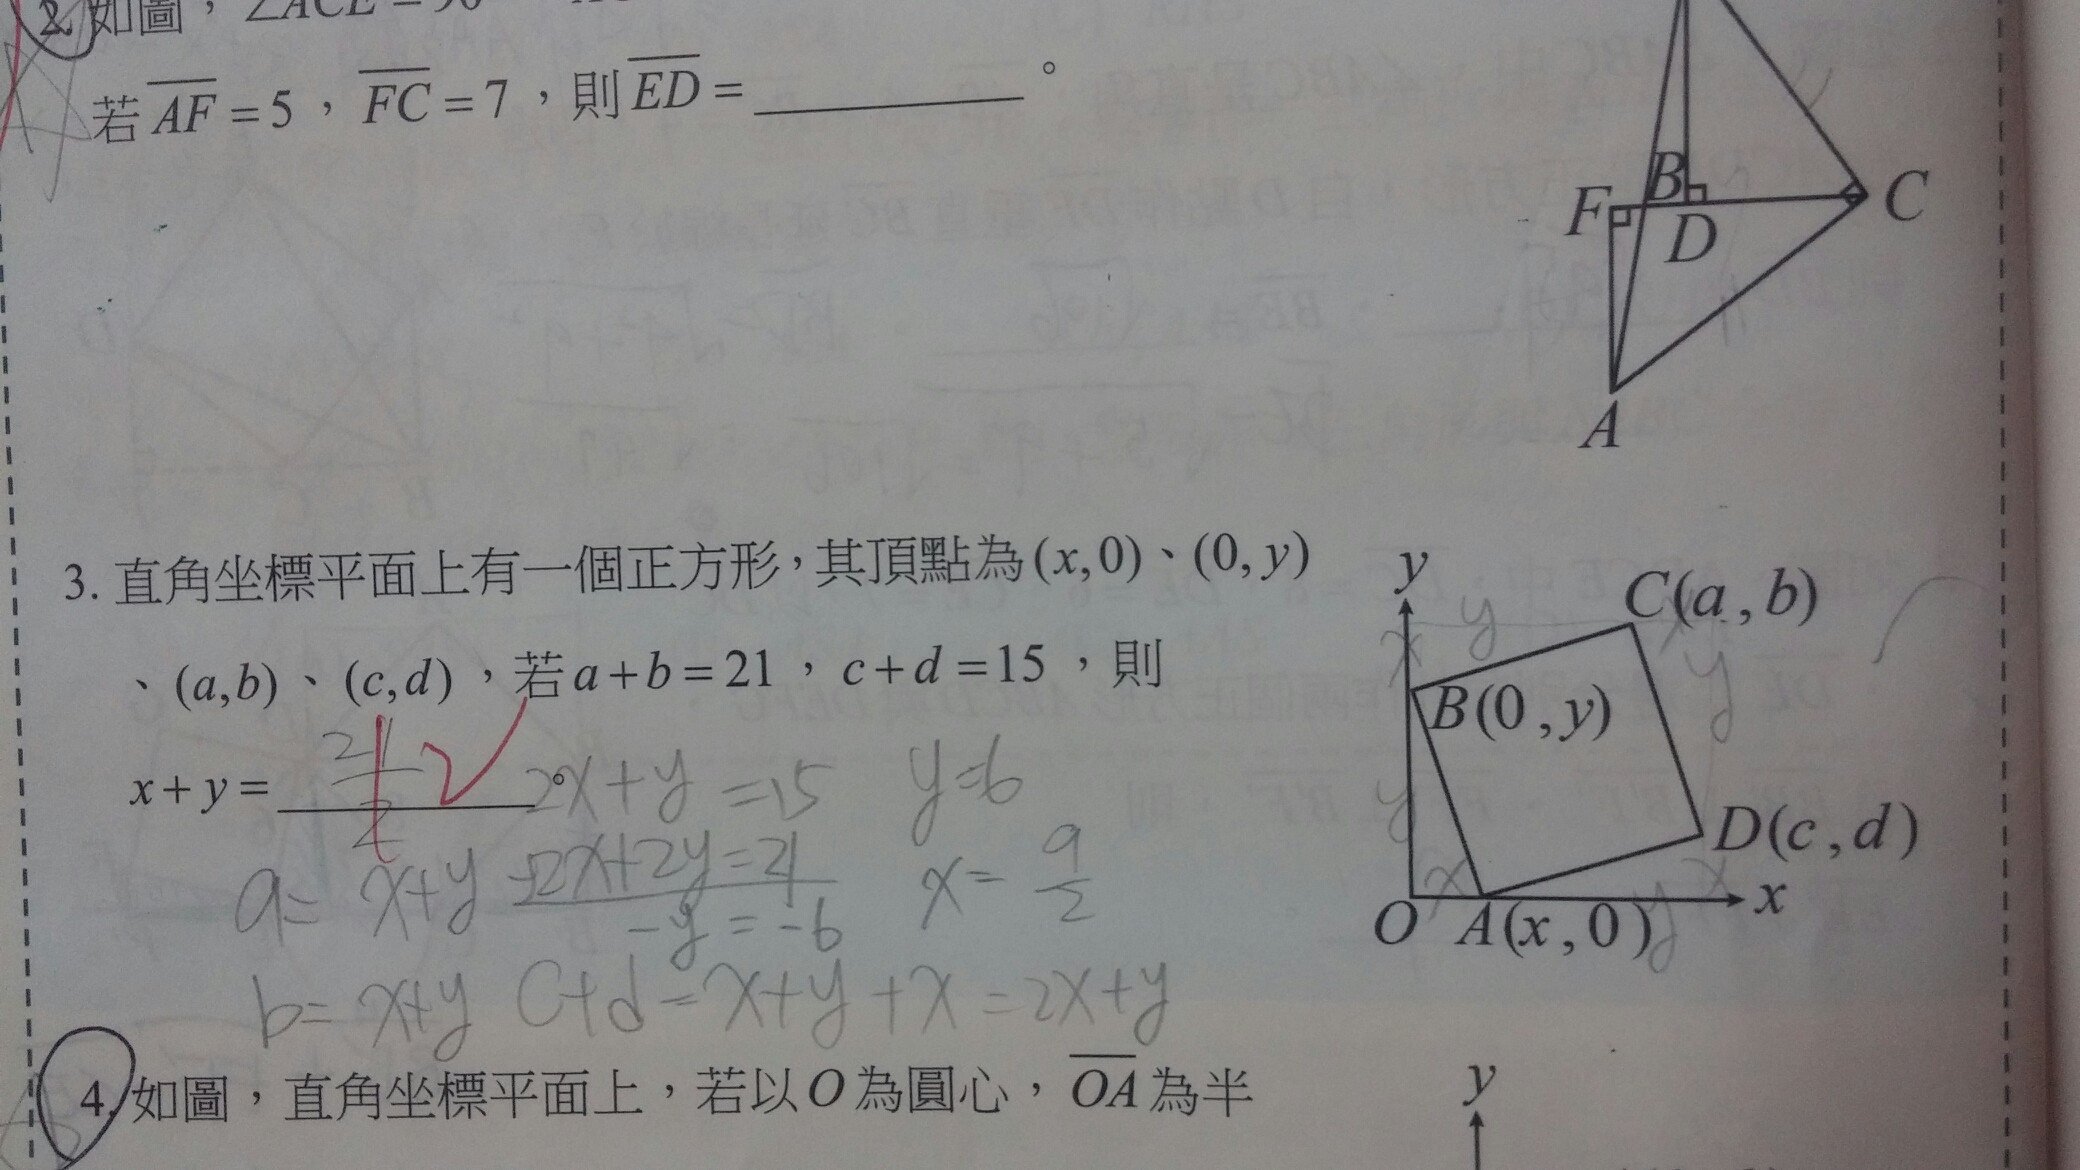 2. 如圖，∠ACE = 90
若 AF = 5 ， FC = 7 ，則 ED = ________ 。
F
B
D
C
A
3. 直角坐標平面上有一個正方形，其頂點為 (x, 0)、(0, y)
、(a,b) 、 (c,d) ，若 a + b = 21 ， c + d = 15 ，則
x + y = 21/2 。
2x+y =15
y=6
a= x+y
-2x+2y=21
-y = -6
x= 9/2
b= x+y
c+d = x+y+x = 2x+y
y
C(a , b)
x
y
x
y
B(0 , y)
y
D(c , d)
x
x
y
O
A(x , 0)
x
y
4. 如圖，直角坐標平面上，若以 O 為圓心， OA 為半
y